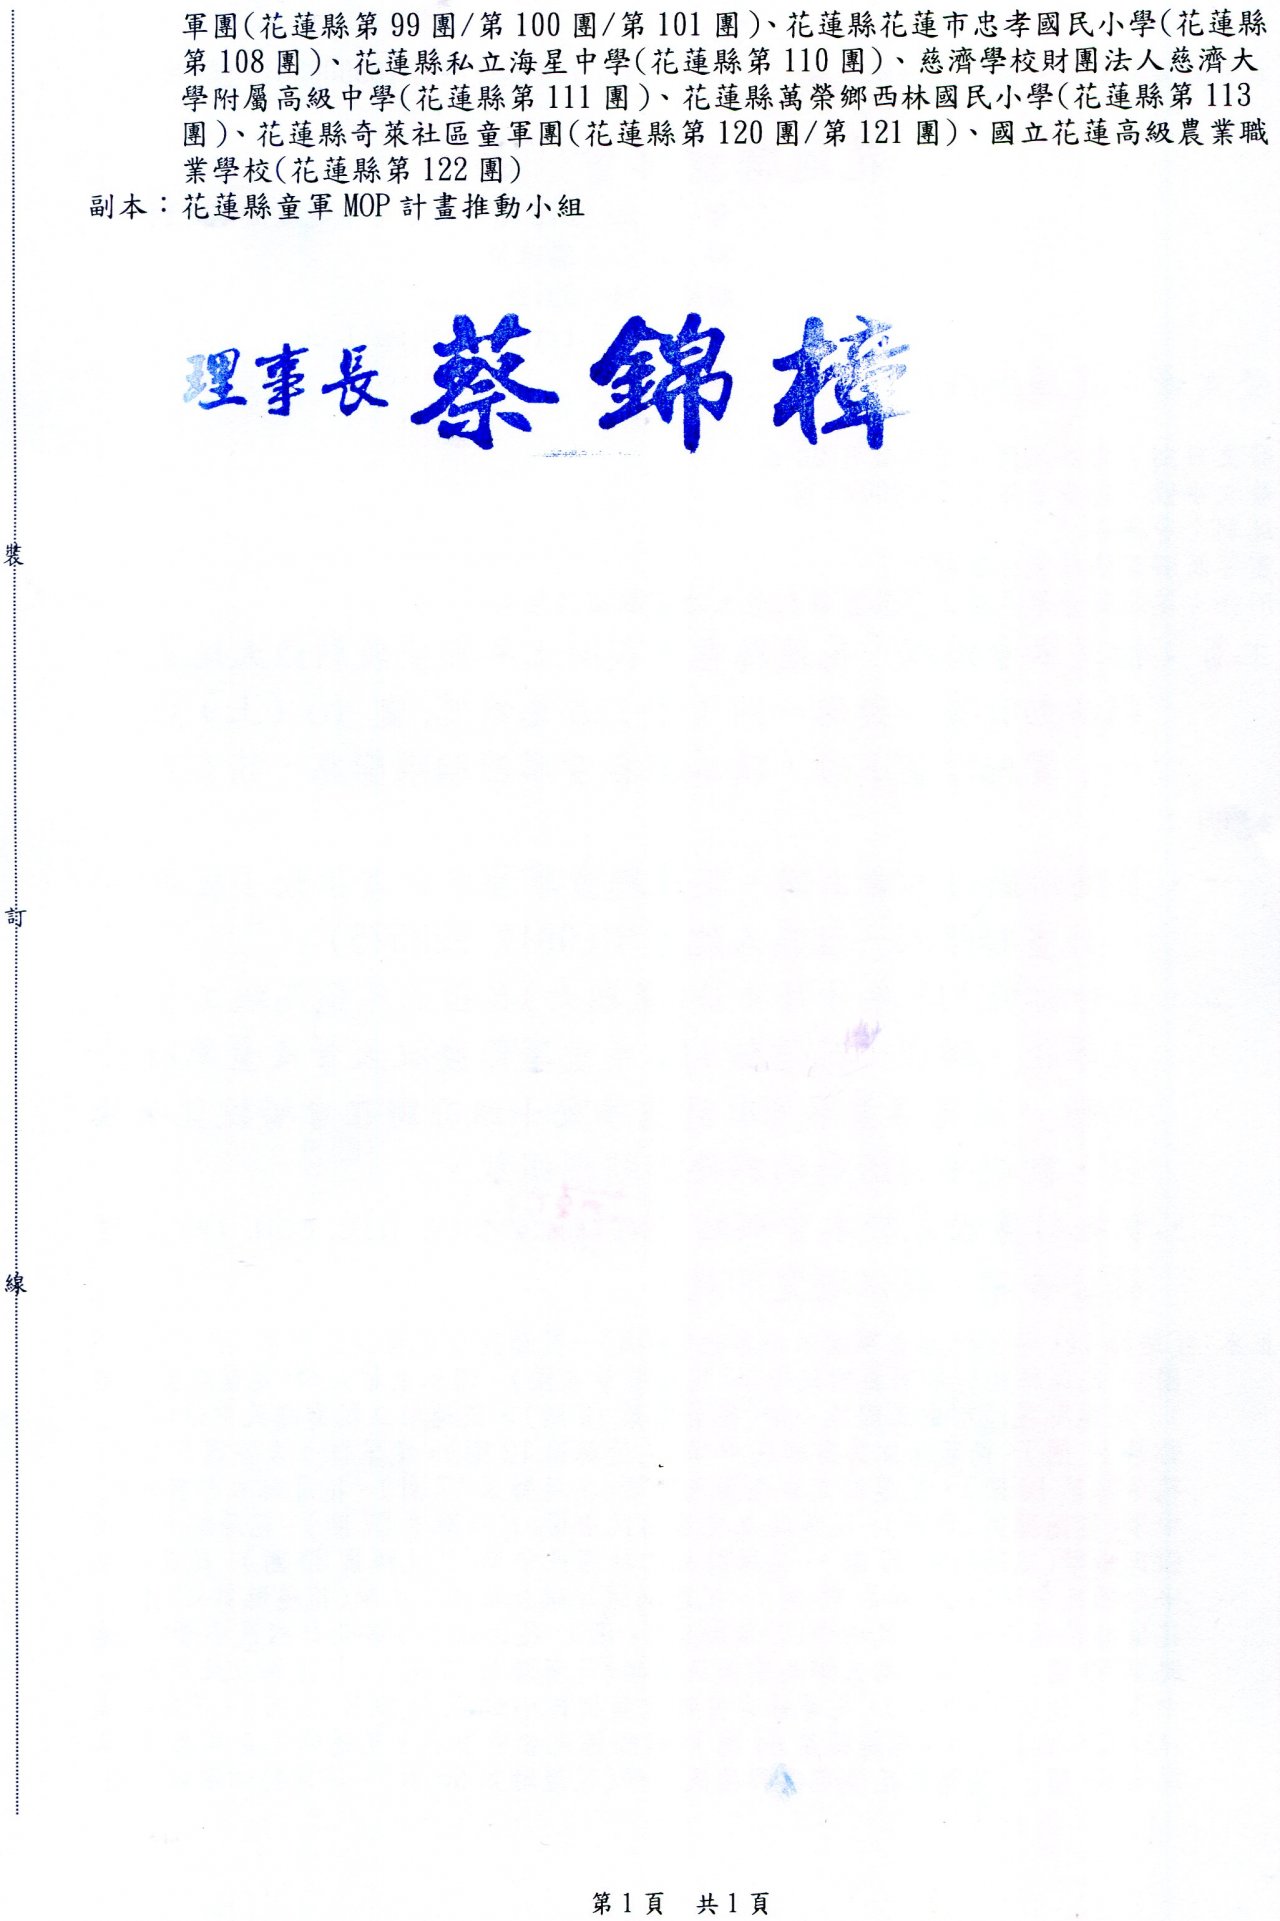 軍團(花蓮縣第 99 團/第 100 團/第 101 團)、花蓮縣花蓮市忠孝國民小學(花蓮縣
第 108 團)、花蓮縣私立海星中學(花蓮縣第 110 團)、慈濟學校財團法人慈濟大
學附屬高級中學(花蓮縣第 111 團)、花蓮縣萬榮鄉西林國民小學(花蓮縣第 113
團)、花蓮縣奇萊社區童軍團(花蓮縣第 120 團/第 121 團)、國立花蓮高級農業職
業學校(花蓮縣第 122 團)
副本：花蓮縣童軍 MOP 計畫推動小組
理事長 蔡錦樟
裝
訂
線
第 1 頁 共 1 頁